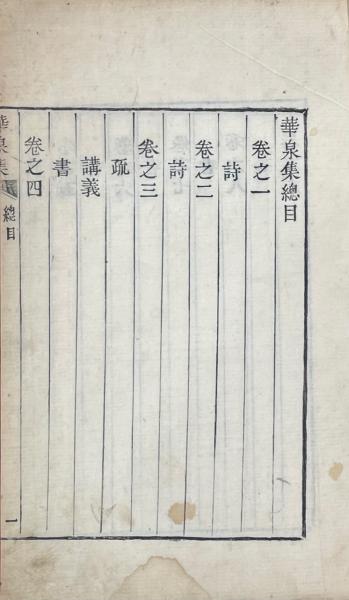 華泉集總目
卷之一
詩
卷之二
詩
卷之三
疏
講義
書
卷之四
華泉集
總目
一